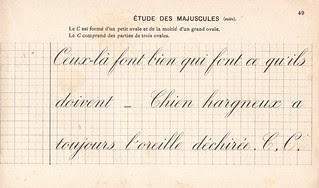 49
ÉTUDE DES MAJUSCULES (suite).
Le C est formé d'un petit ovale et de la moitié d'un grand ovale.
Le C comprend des parties de trois ovales.
Ceux-là font bien qui font ce qu'ils
doivent _ Chien hargneux a
toujours l'oreille déchirée. C. C.